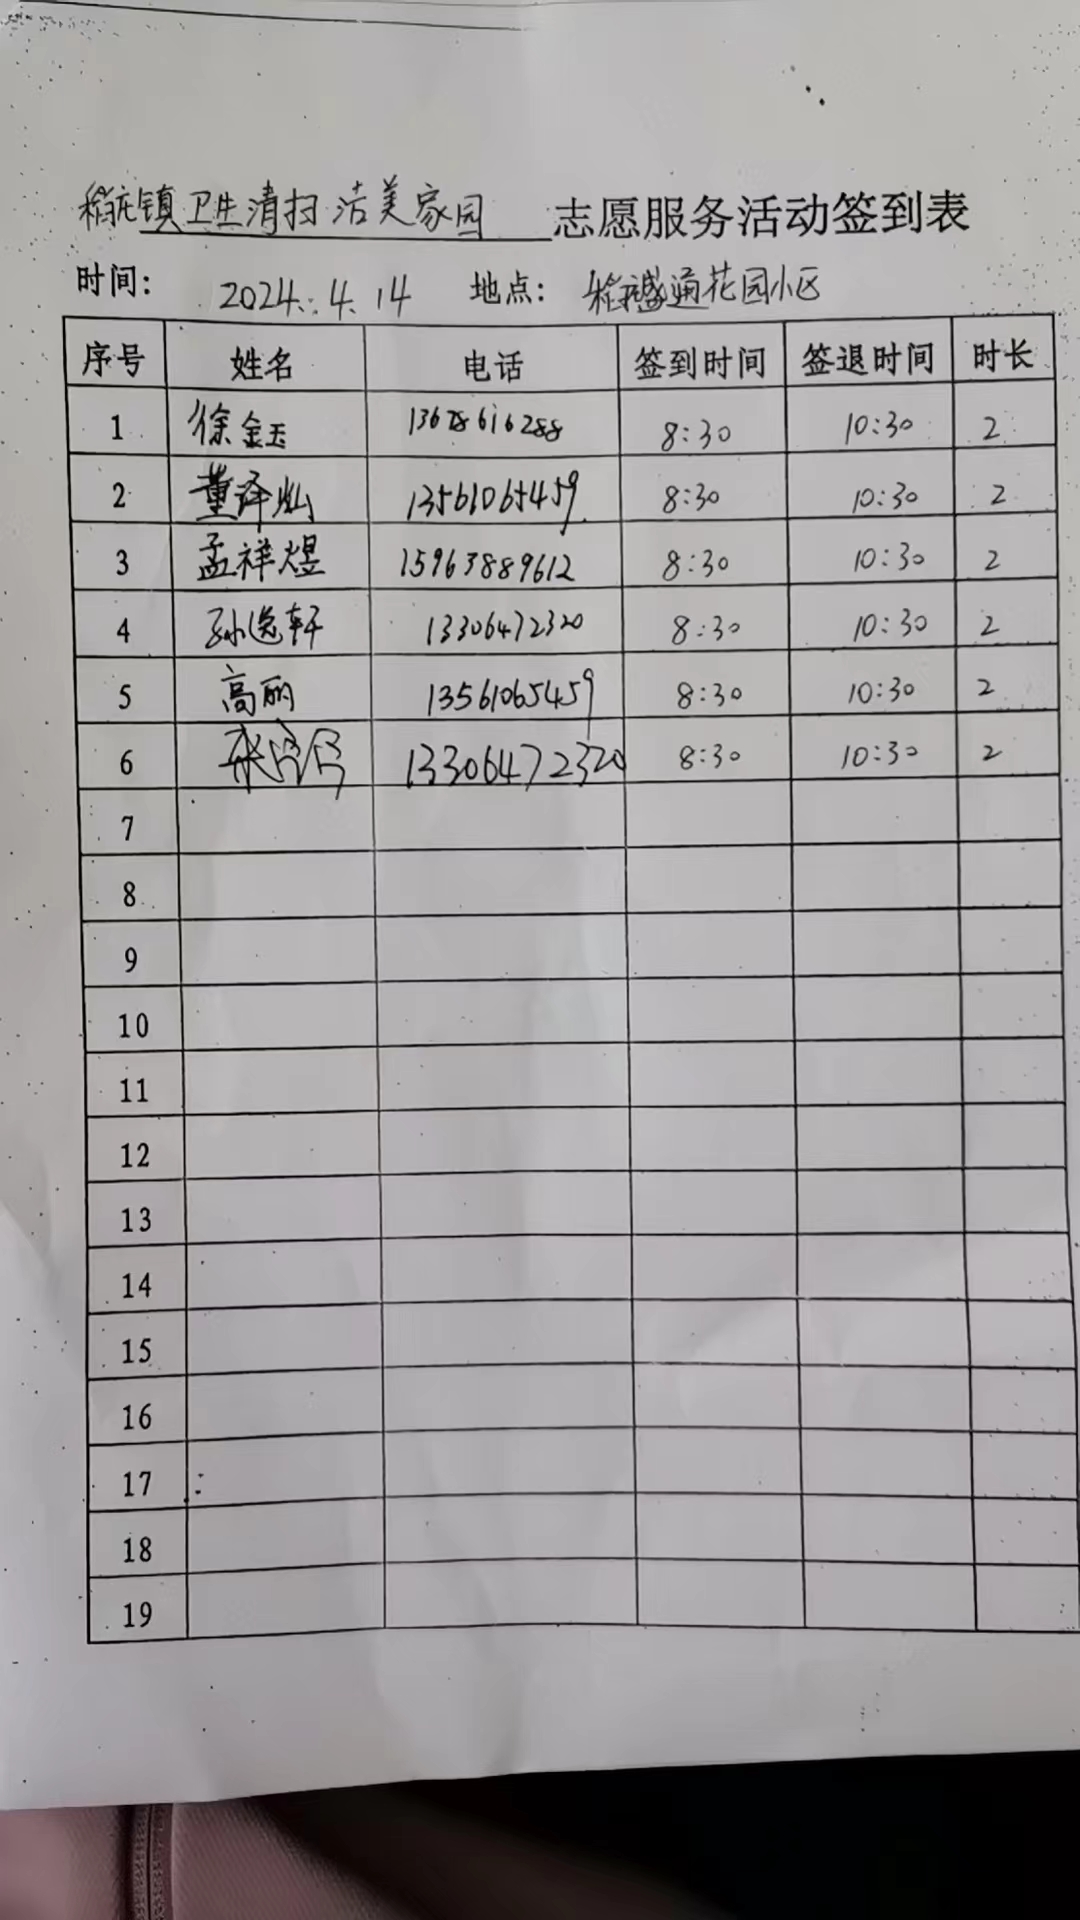 稻庄镇卫生清扫洁美家园 志愿服务活动签到表
时间: 2024.4.14 地点: 稻庄盛通花园小区
序号 姓名 电话 签到时间 签退时间 时长
1 徐金玉 13678616288 8:30 10:30 2
2 董泽灿 13561065459 8:30 10:30 2
3 孟祥煜 15963889612 8:30 10:30 2
4 孙逸轩 13306472320 8:30 10:30 2
5 高丽 13561065459 8:30 10:30 2
6 张 13306472320 8:30 10:30 2
7
8
9
10
11
12
13
14
15
16
17
18
19